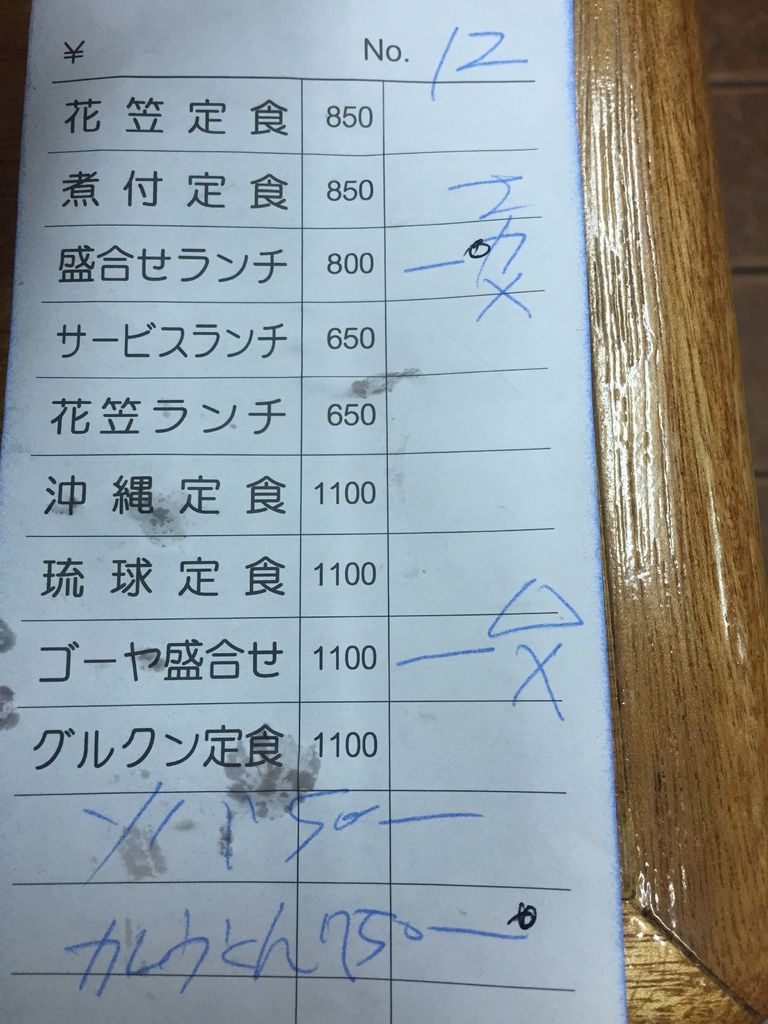 ¥ No. 12
花笠定食 850
煮付定食 850
盛合せランチ 800 一 カ
サービスランチ 650
花笠ランチ 650
沖縄定食 1100
琉球定食 1100
ゴーヤ盛合せ 1100 一 △ X
グルクン定食 1100
50 一
カレウどん 750 一